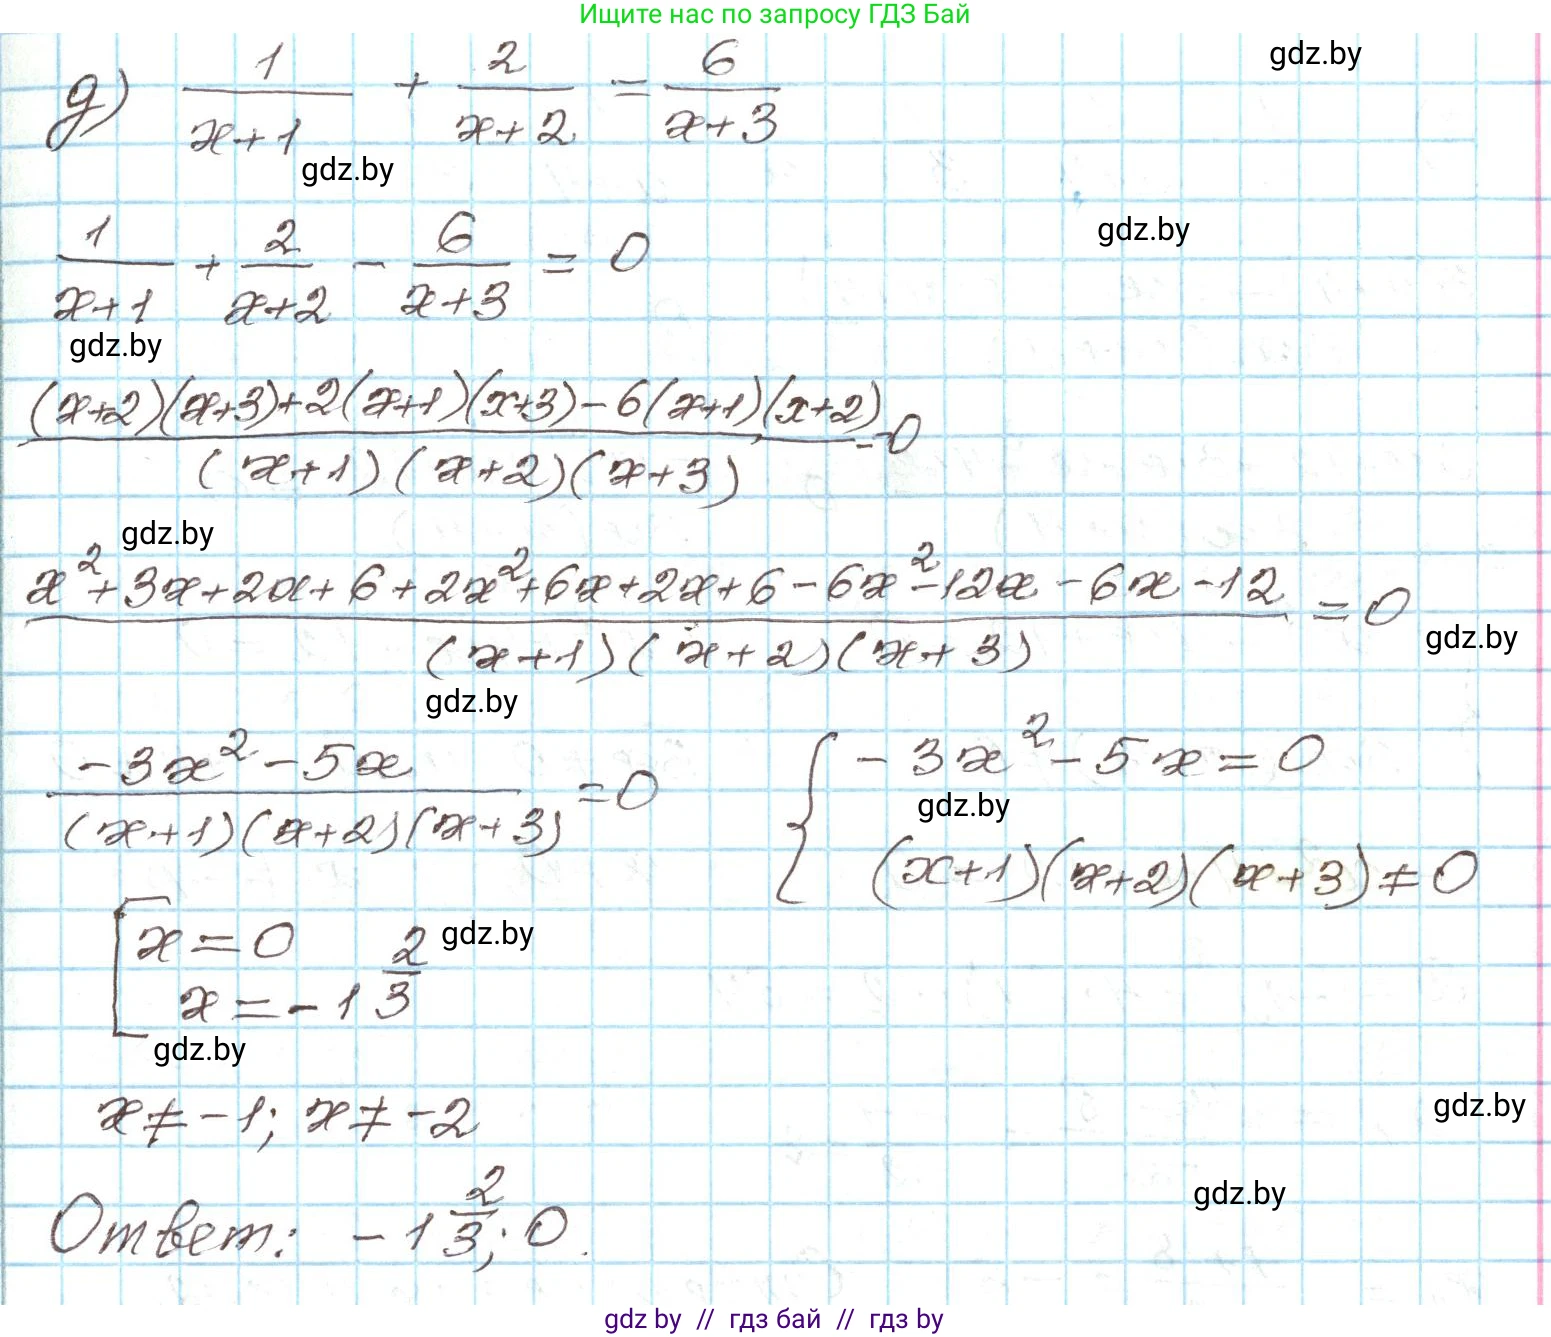 Ищите нас по запросу ГДЗ Бай
gdz.by
д) 1/(x+1) + 2/(x+2) = 6/(x+3)
gdz.by
gdz.by
1/(x+1) + 2/(x+2) - 6/(x+3) = 0
gdz.by
((x+2)(x+3)+2(x+1)(x+3)-6(x+1)(x+2))/((x+1)(x+2)(x+3)) = 0
gdz.by
(x²+3x+2x+6+2x²+6x+2x+6-6x²-12x-6x-12)/((x+1)(x+2)(x+3)) = 0
gdz.by
gdz.by
(-3x²-5x)/((x+1)(x+2)(x+3)) = 0
{ -3x²-5x=0
gdz.by
(x+1)(x+2)(x+3)≠0
[ x=0
gdz.by
x=-1 2/3
gdz.by
x≠-1; x≠-2
gdz.by
gdz.by
Ответ: -1 2/3; 0.
gdz by // гдз бай // гдз by